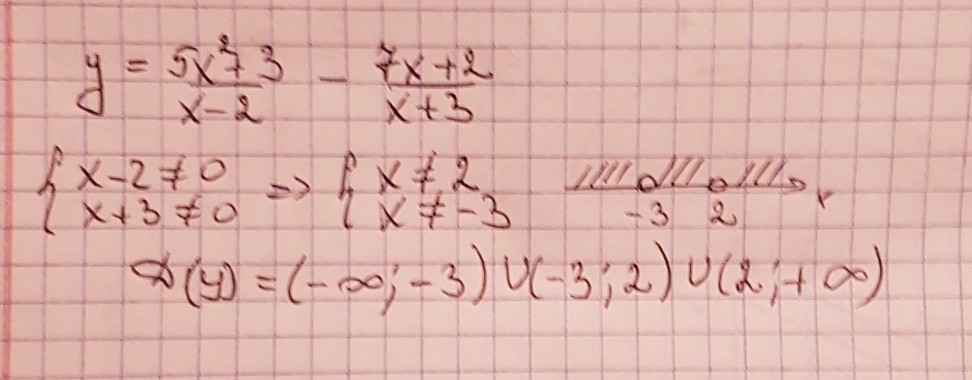 y = (5x²+3)/(x-2) - (7x+2)/(x+3)
{ x-2≠0 => { x≠2
{ x+3≠0 { x≠-3
-3 2 x
D(y) = (-∞; -3) U(-3; 2) U(2; +∞)